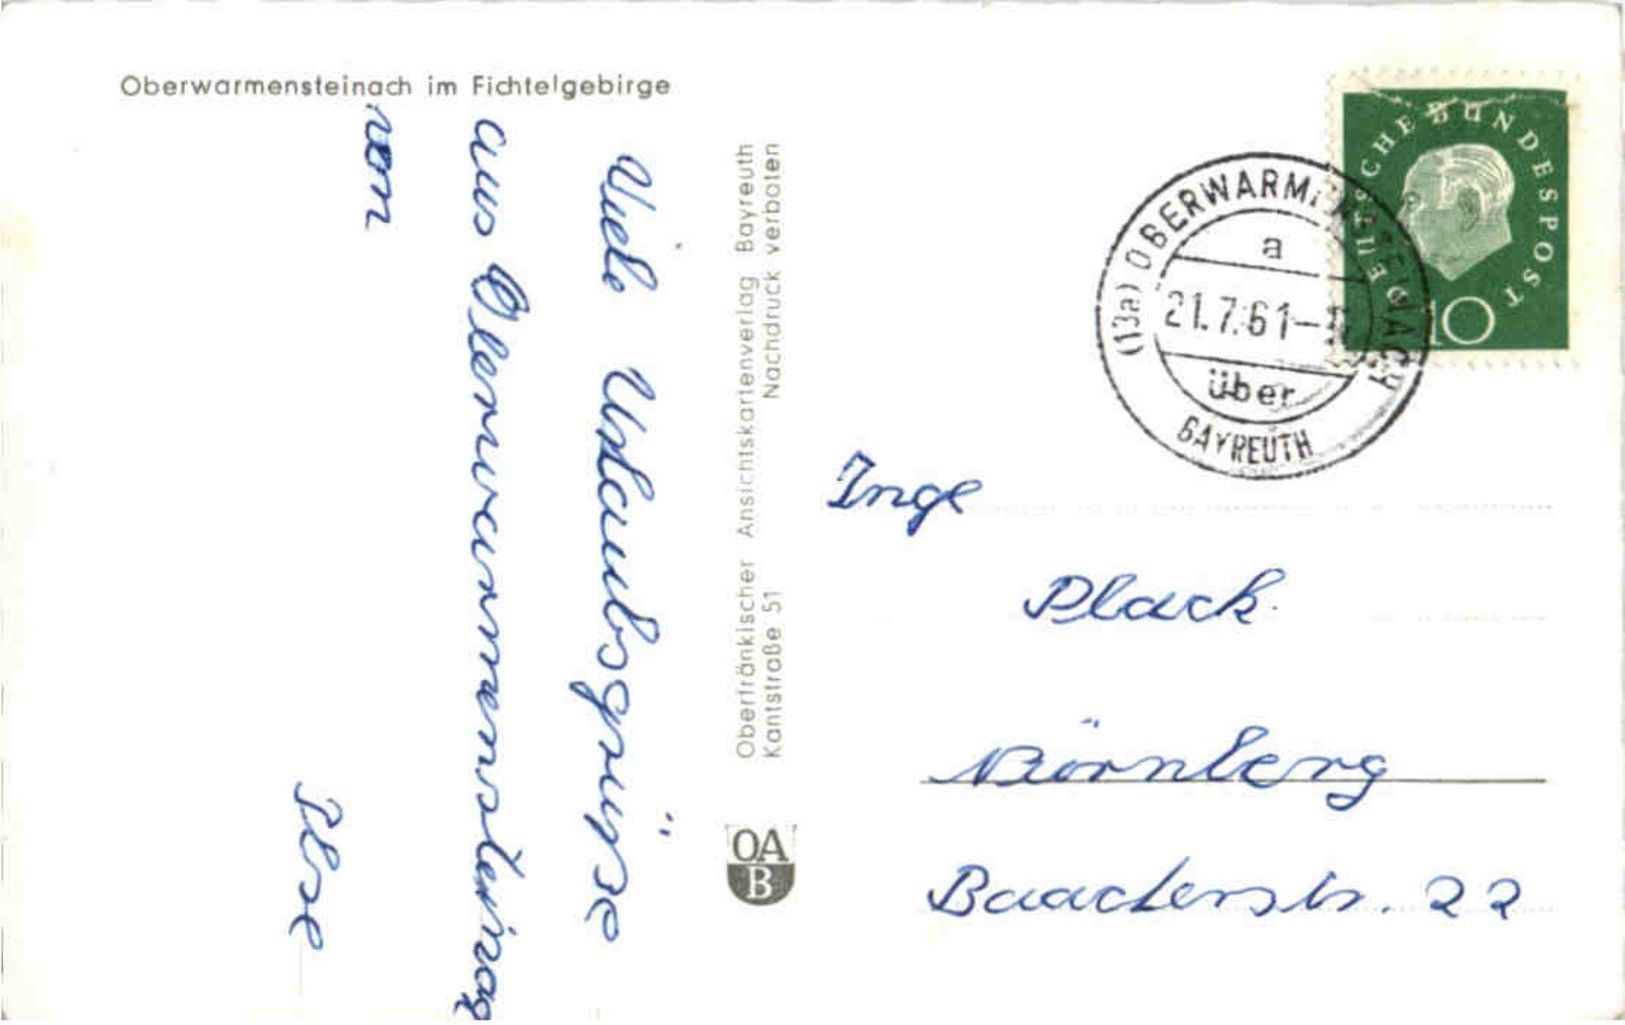 Oberwarmensteinach im Fichtelgebirge
Viele Urlaubsgrüße
aus Oberwarmensteinag
von
Ilse
Oberfränkischer Ansichtskartenverlag Bayreuth
Kantstraße 51 Nachdruck verboten
OA
B
DEUTSCHE BUNDESPOST
10
(13a) OBERWARMENSTEINACH
a
21.7.61-
über
BAYREUTH
Inge
Plack
Nürnberg
22